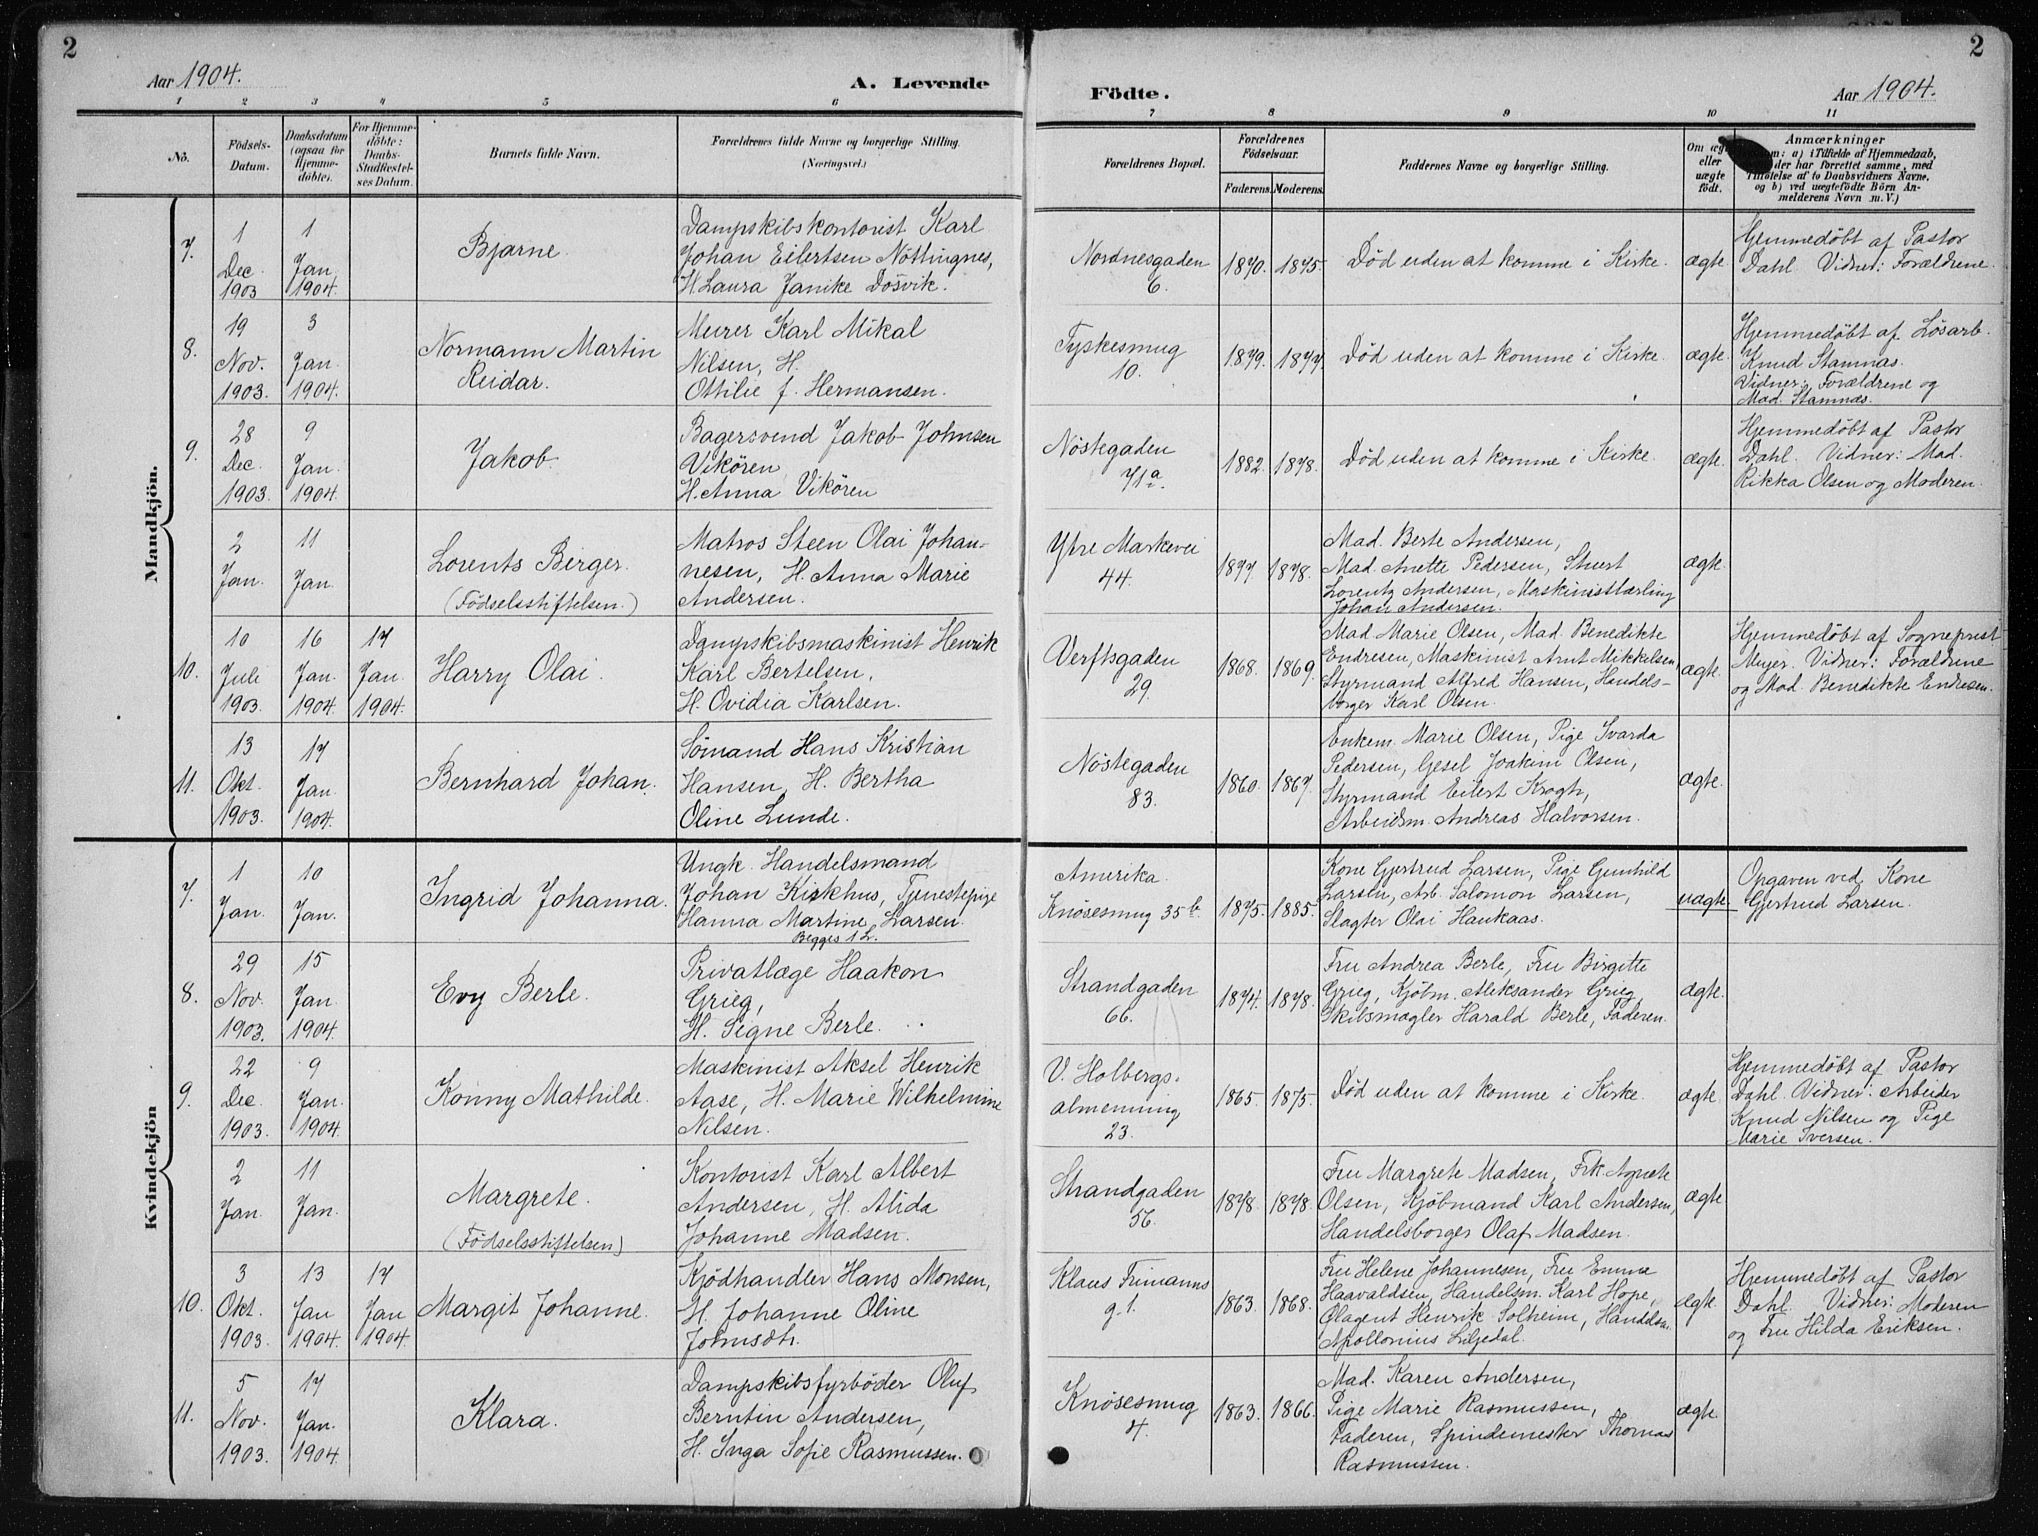 2
Aar 1904.
A. Levende
1 2 3 4 5 6
No.
Födsels-
Datum.
Daabsdatum
(ogsaa for
Hjemme-
döbte).
For Hjemme-
döbte:
Daabs-
Stadfæstel-
ses Datum.
Barnets fulde Navn.
Forældrenes fulde Navne og borgerlige Stilling.
(Næringsvei.)
Mandkjön.
7.
1
Dec.
1903
1
Jan.
1904.
Bjarne.
Dampskibskontorist Karl
Johan Eilertsen Nöttingnes,
H. Laura Janike Dösvik.
8.
19
Nov.
1903.
3
Jan.
1904.
Normann Martin
Reidar.
Murer Karl Mikal
Nilsen, H.
Ottilie f. Hermansen.
9.
28
Dec.
1903.
9
Jan.
1904.
Jakob.
Bagersvend Jakob Johnsen
Vikören
H. Anna Vikören
2
Jan.
11
Jan.
Lorents Birger.
(Födselsstiftelsen.)
Matros Steen Olai Johan-
nesen, H. Anna Marie
Andersen.
10.
10
Juli
1903.
16
Jan.
1904.
17
Jan.
1904.
Harry Olai.
Dampskibsmaskinist Henrik
Karl Bertelsen,
H. Ovidia Karlsen.
11.
13
Okt.
1903.
17
Jan.
1904.
Bernhard Johan.
Sömand Hans Kristian
Hansen, H. Bertha
Oline Lunde.
Kvindekjön
7.
1
Jan.
10
Jan.
Ingrid Johanna.
Ungk. Handelsmand
Johan Kirkhus, Tjenestepige
Hanna Martine Larsen.
Begges 1 L.
8.
29
Nov.
1903.
15
Jan.
1904.
Evy Berle.
Privatlæge Haakon
Grieg,
H. Signe Berle.
9.
22
Dec.
1903.
9
Jan.
1904.
Konny Mathilde.
Maskinist Aksel Henrik
Aase, H. Marie Wilhelmine
Nilsen.
2
Jan.
11
Jan.
Margrete.
(Födselsstiftelsen)
Kontorist Karl Albert
Andersen, H. Alida
Johanne Madsen.
10.
3
Okt.
1903.
13
Jan
1904.
17
Jan
1904.
Margit Johanne.
Kjödhandler Hans Monsen,
H. Johanne Oline
Johnsdtr.
11.
5
Nov.
1903.
17
Jan.
1904.
Klara.
Dampskibsfyrböder Oluf
Berntin Andersen,
H. Inga Sofie Rasmussen.
2
Födte.
Aar 1904.
7 8 9 10 11
Forældrenes Bopæl.
Forældrenes
Födselsaar.
Faderens. Moderens.
Faddernes Navne og borgerlige Stilling.
Om ægte
eller
uægte
födt.
Anmærkninger
a) i Tilfælde af Hjemmedaab,
der har forrettet samme, med
Tilföielse af to Daabsvidners Navne,
og b) ved uægtefödte Börn An-
melderens Navn m. V.)
Nordnesgaden
6.
1870. 1875.
Död uden at komme i Kirke.
ægte.
Hjemmedöbt af Pastor
Dahl. Vidner: Forældrene.
Tyskesmug
10.
1879. 1877.
Död uden at komme i Kirke.
ægte.
Hjemmedöbt af Lösarb.
Knud Stamnas.
Vidner: Forældrene og
Mad. Stamnæs.
Nöstegaden
71a.
1882. 1878.
Död uden at komme i Kirke.
ægte.
Hjemmedöbt af Pastor
Dahl. Vidner: Mad.
Rikka Olsen og Moderen.
Ytre Markevei
44.
1877. 1878.
Mad. Berte Andersen,
Mad. Anette Pedersen, Stuert
Lorentz Andersen, Maskinistlærling
Johan Andersen.
ægte.
Verftsgaden
29.
1868. 1869.
Mad Marie Olsen, Mad. Benedikte
Endresen, Maskinist Arnt Mikkelsen,
Styrmand Alfred Hansen, Handels-
borger Karl Olsen.
ægte.
Hjemmedöbt af Sogneprest
Meyer. Vidner: Forældrene
og Mad. Benedikte Endresen.
Nöstegaden
83.
1860. 1867.
Enkem. Marie Olsen, Pige Svarda
Pedersen, Gesel Joakim Olsen,
Styrmand Eilert Krogh,
Arbeidsm. Andreas Halvorsen.
ægte.
Amerika.
Knösesmug 35b.
1875. 1885.
Kone Gjertrud Larsen, Pige Gunhild
Larsen, Arb. Salomon Larsen,
Slagter Olai Haukaas.
uægte
Opgaven ved Kone
Gjertrud Larsen.
Strandgaden
66.
1874. 1878.
Fru Andrea Berle, Fru Birgitte
Grieg, Kjöbm. Aleksander Grieg,
Skibsmægler Harald Berle, Faderen.
ægte.
V. Holbergs-
almenning
23.
1865. 1875.
Död uden at komme i Kirke.
ægte.
Hjemmedöbt af Pastor
Dahl. Vidner: Arbeider
Knud Nilsen og Pige
Marie Iversen.
Strandgaden
56.
1878. 1878.
Fru Margrete Madsen, Frk Agnete
Olsen, Kjöbmand Karl Andersen,
Handelsborger Olaf Madsen.
ægte
Klaus Frimanns
g. 1.
1863. 1868.
Fru Helene Johannesen, Fru Emma
Haavaldsen, Handelsm. Karl Hope,
Ølagent Henrik Solheim, Handelsm.
Apollonius Liljedal.
ægte.
Hjemmedöbt af Pastor
Dahl. Vidner: Moderen
og Fru Hilda Eriksen.
Knösesmug
4.
1863. 1866.
Mad. Karen Andersen,
Pige Marie Rasmussen,
Faderen, Spindemester Thomas
Rasmussen.
ægte.